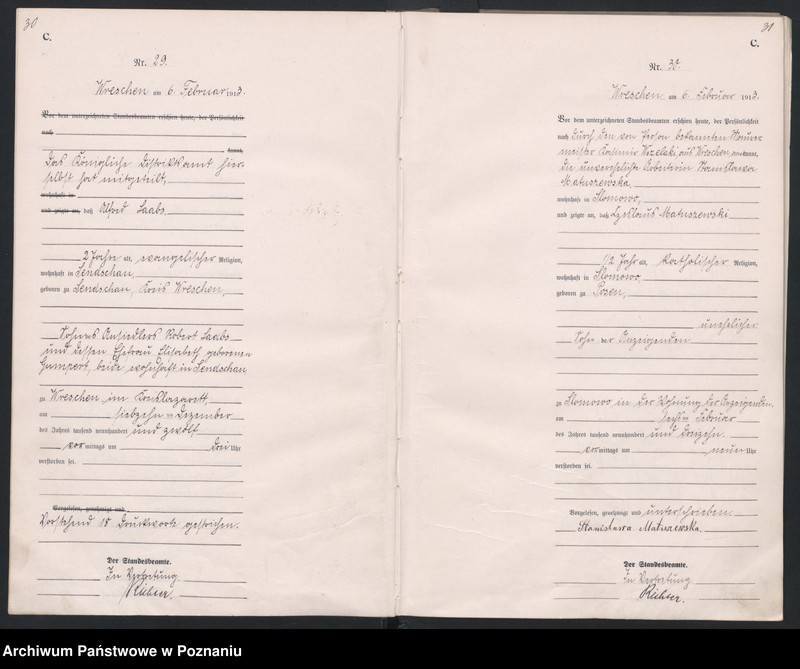 30
C.
Nr. 29.
Wreschen am 6. Februar 1913.
Vor dem unterzeichneten Standesbeamten erschien heute, der Persönlichkeit
nach
kannt,
Das Königliche Distriktsamt hier-
selbst hat mitgeteilt,
wohnhaft in
und zeigte an, daß Alfred Saabs
2 Jahre alt, evangelischer Religion,
wohnhaft in Sendschau,
geboren zu Sendschau, Kreis Wreschen,
Sohn des Ansiedlers Robert Saabs
und dessen Ehefrau Elisabeth geborenen
Gumpert, beide wohnhaft in Sendschau
zu Wreschen im Kreislazarett,
am siebzehnten Dezember
des Jahres tausend neunhundert und zwölf
vormittags um drei Uhr
verstorben sei.
Vorgelesen, genehmigt und
Vorstehend 18 Druckworte gestrichen.
Der Standesbeamte.
In Vertretung
Richter.
31
C.
Nr. 30.
Wreschen am 6. Februar 1913.
Vor dem unterzeichneten Standesbeamten erschien heute, der Persönlichkeit
nach durch den von Person bekannten Maurer
meister Kasimir aus Wreschen anerkannt,
die unverehelichte Arbeiterin Stanislawa
Matuszewska,
wohnhaft in Slomowo,
und zeigte an, daß Matuszewski
1/2 Jahr alt, katholischer Religion,
wohnhaft in Slomowo,
geboren zu Posen,
unehelicher
Sohn der Anzeigenden
zu Slomowo in der Wohnung der Anzeigenden,
am sechsten Februar
des Jahres tausend neunhundert und dreizehn
vormittags um neun Uhr
verstorben sei.
Vorgelesen, genehmigt und unterschrieben.
Stanisława Matuszewska
Der Standesbeamte.
In Vertretung
Richter.
Archiwum Państwowe w Poznaniu